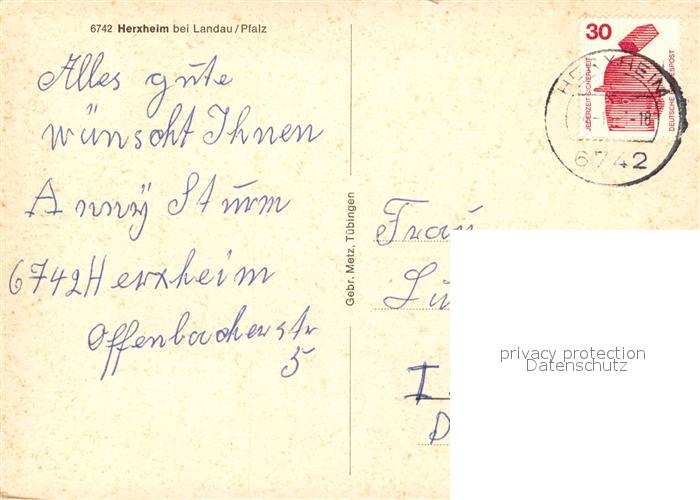 6742 Herxheim bei Landau/Pfalz
Alles gute
wünscht Ihnen
Anny Sturm
6742 Herxheim
Offenbacherstr
5
Gebr. Metz, Tübingen
30
JEDERZEIT SICHERHEIT
DEUTSCHE BUNDESPOST
HERXHEIM
-18
6742
Frau
privacy protection
Datenschutz